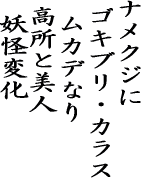 ナメクジに
ゴキブリ・カラス
ムカデなり
高所と美人
妖怪変化